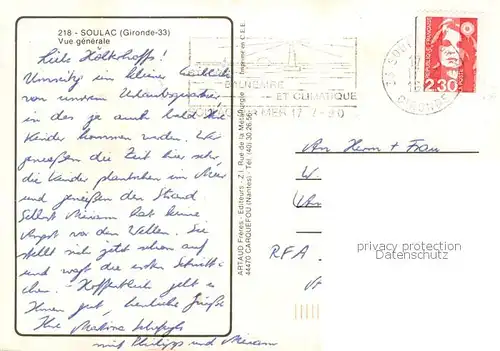 218 - SOULAC (Gironde-33)
Vue générale
Liebe Holkhoffs!
Umseitig ein kleiner
von unserem Urlaubsquartier,
in das ja auch bald die
Kinder kommen werden. Wir
genießen die Zeit hier sehr,
die Kinder plantschen im Meer
und genießen den Strand
Selbst Miriam hat keine
Angst vor den Wellen. Sie
stellt sich jetzt schon auf
und wagt die ersten Schritt-
chen. - Hoffentlich geht es
Ihnen gut, herzliche Grüße
Ihre Martina
mit Philipp und Miriam
ARTAUD Frères - Editeurs - Z.I. Rue de la Métallurgie
44470 CARQUEFOU (Nantes) - Tél. (40) 30.26.56
Imprimé en C.E.E.
BALNEAIRE
ET CLIMATIQUE
MER 17 -7-90
33 SOU
GIRONDE
REPUBLIQUE FRANÇAISE
2,30
An Herrn + Frau
W
RFA
privacy protection
Datenschutz